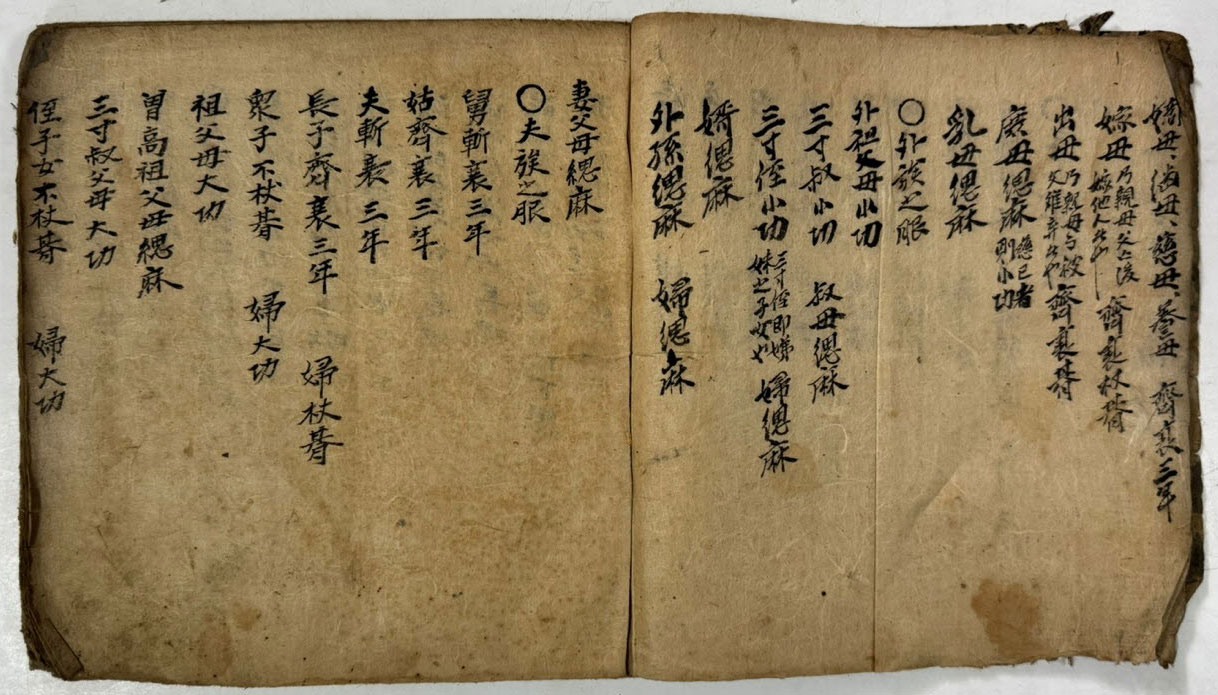 嫡母、継母、慈母、養母 齊衰三年
嫁母 乃親母父亡後嫁他人者也 齊衰杖朞
出母 乃親母与被父離弃者也 齊衰朞
庶母緦麻 慈己者則小功
乳母緦麻
○外族之服
外祖父母小功
三寸叔小功 叔母緦麻
三寸侄小功 三寸侄即姊妹之子女也 婦緦麻
婿緦麻
外孫緦麻 婦緦麻
妻父母緦麻
○夫族之服
舅斬衰三年
姑齊衰三年
夫斬衰三年
長子齊衰三年 婦杖朞
衆子不杖朞 婦大功
祖父母大功
曽高祖父母緦麻
三寸叔父母大功
侄子女不杖朞 婦大功